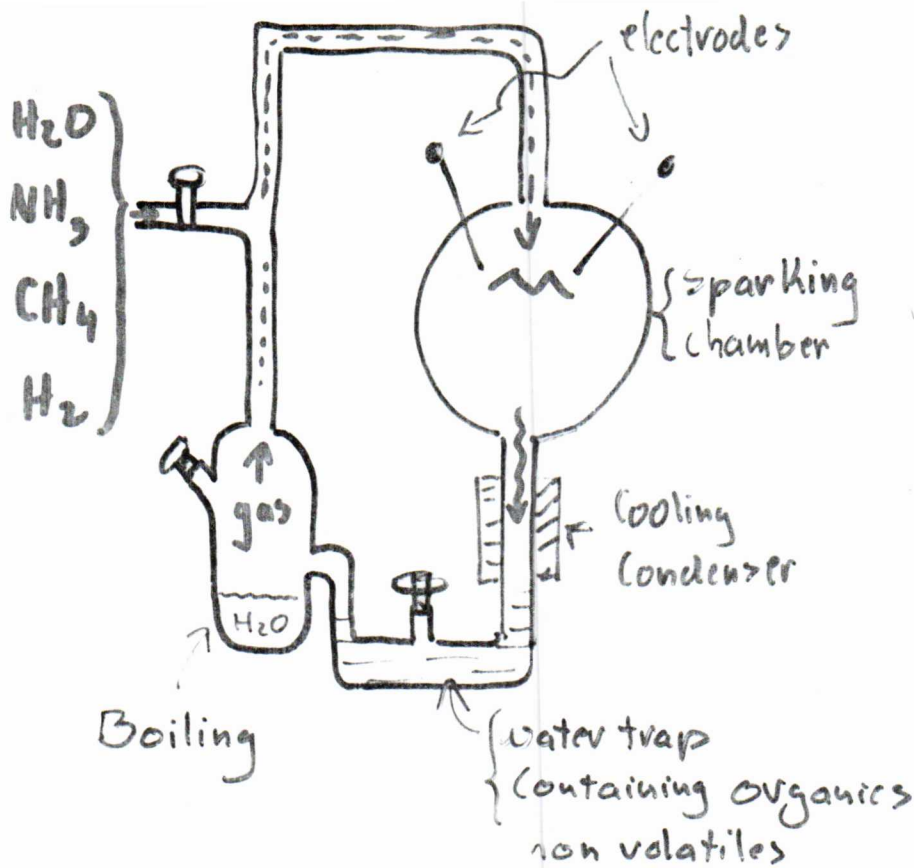 electrodes
H₂O
NH₃
CH₄
H₂
sparking
chamber
gas
Cooling
Condenser
H₂O
Boiling
water trap
Containing organics
non volatiles